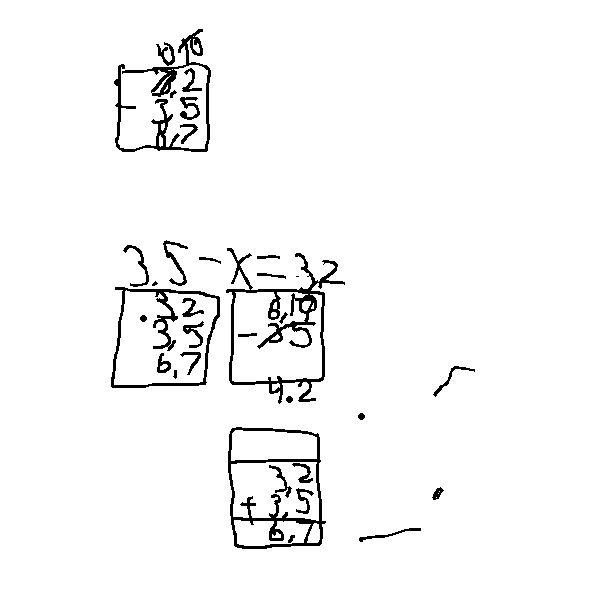 - 3,5
8,7
3.5 - x = 3,2
3,2
3,5
6,7
6,10
- 35
4.2
3,2
+ 3,5
6,7